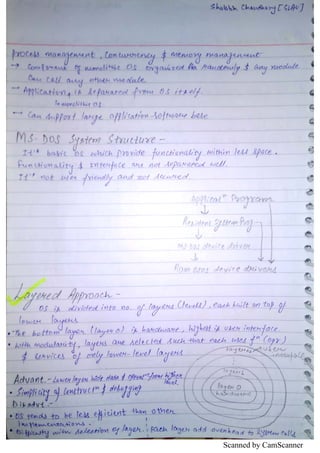 Shobhit Chaudhary [CSAU]
process management, Concurrency & memory management
→ Component of monolithic OS organized are randomly & any module
can call any other module
→ Application is separated from OS itself.
In monolithic OS
→ Can support large application-software base
MS-DOS System Structure -
It's basic OS which provide functionality within less space.
Functionality & Interface are not separated well.
It's not user friendly and not secured.
Applicatn Program
Resident System Prog
MS DOS device driver
ROM BIOS device drivers
Layered Approach -
OS is divided into no. of layers (levels), each built on top of
lower layers
• The bottom layer (layer 0) is hardware, highest is user interface.
• with modularity, layers are selected such that each uses fn (opr)
& services of only lower-level layers
layer N user
interface
layer 1
layer 0
hardware
Advant. - Lower layer hide data & from higher
level
• Simplicity of Constructn & debugging
Disadv -
• OS tends to be less efficient than other
Implementations.
• Difficulty with selection of layer. ; Each layer add overhead to System Calls
Scanned by CamScanner